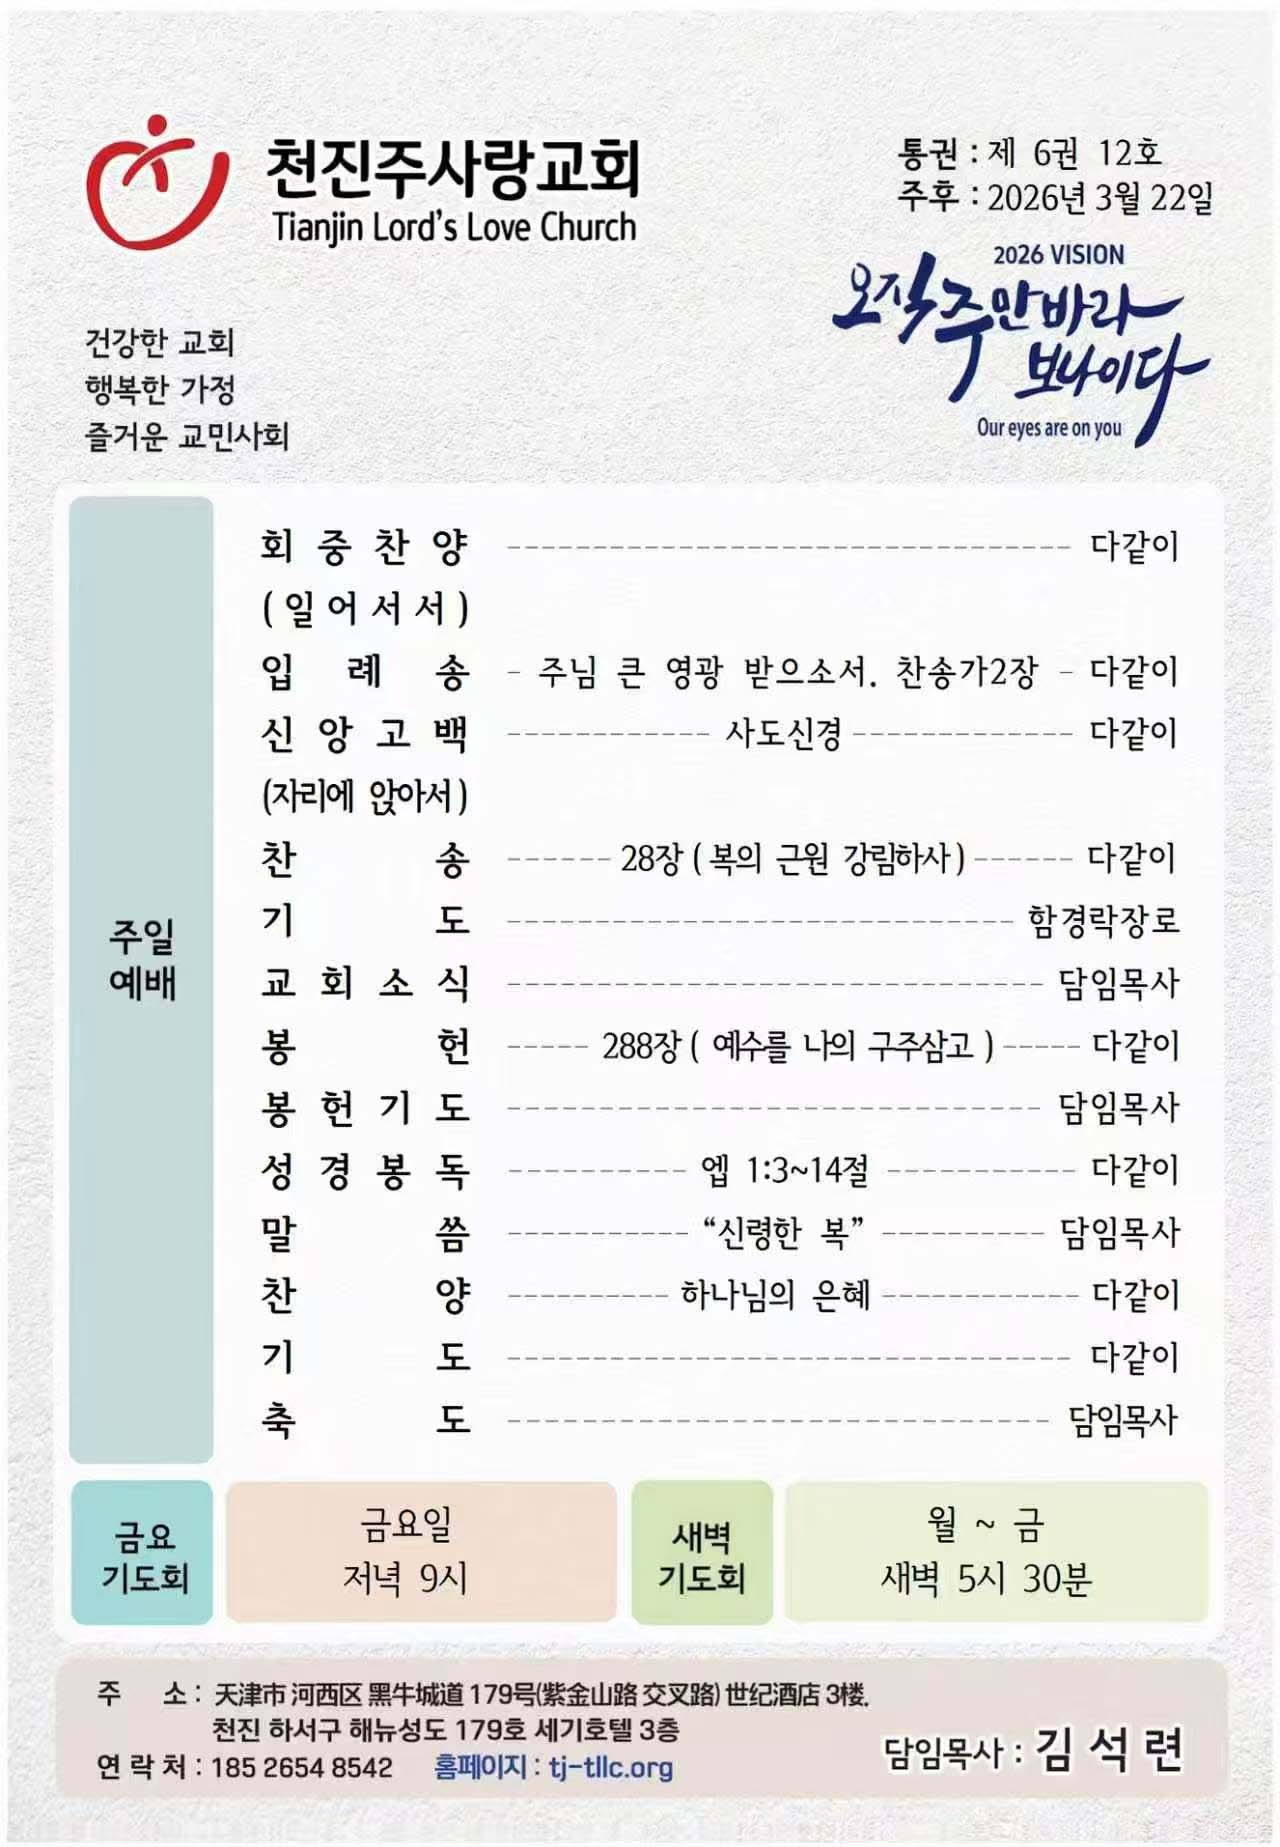 천진주사랑교회
Tianjin Lord's Love Church
통권 : 제 6권 12호
주후 : 2026년 3월 22일
2026 VISION
오직 주만 바라
보나이다
Our eyes are on you
건강한 교회
행복한 가정
즐거운 교민사회
주일
예배
회중찬양 다같이
(일어서서)
입례송 - 주님 큰 영광 받으소서. 찬송가2장 - 다같이
신앙고백 사도신경 다같이
(자리에 앉아서)
찬송 28장 ( 복의 근원 강림하사 ) 다같이
기도 함경락장로
교회소식 담임목사
봉헌 288장 ( 예수를 나의 구주삼고 ) 다같이
봉헌기도 담임목사
성경봉독 엡 1:3~14절 다같이
말씀 “신령한 복” 담임목사
찬양 하나님의 은혜 다같이
기도 다같이
축도 담임목사
금요
기도회
금요일
저녁 9시
새벽
기도회
월 ~ 금
새벽 5시 30분
주 소 : 天津市 河西区 黑牛城道 179号(紫金山路 交叉路) 世纪酒店 3楼.
천진 하서구 해뉴성도 179호 세기호텔 3층
연 락 처 : 185 2654 8542 홈페이지 : tj-tllc.org
담임목사 : 김 석 련